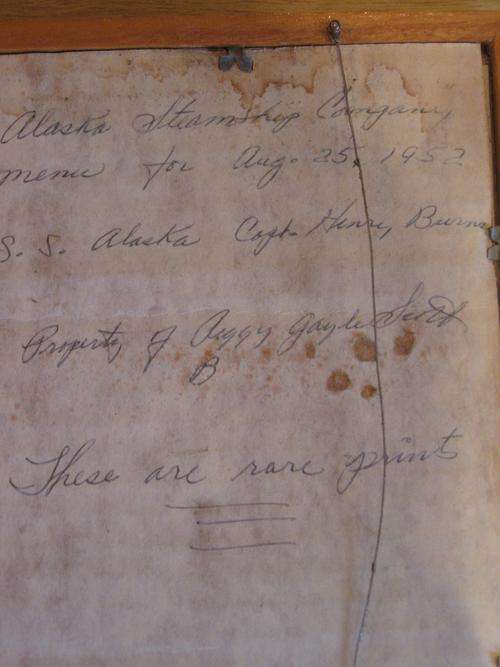 Alaska Steamship Company
menu for Aug. 25, 1952
S. S. Alaska Capt. Henry Burns
Property of Peggy Gayle Scott
B
These are rare prints